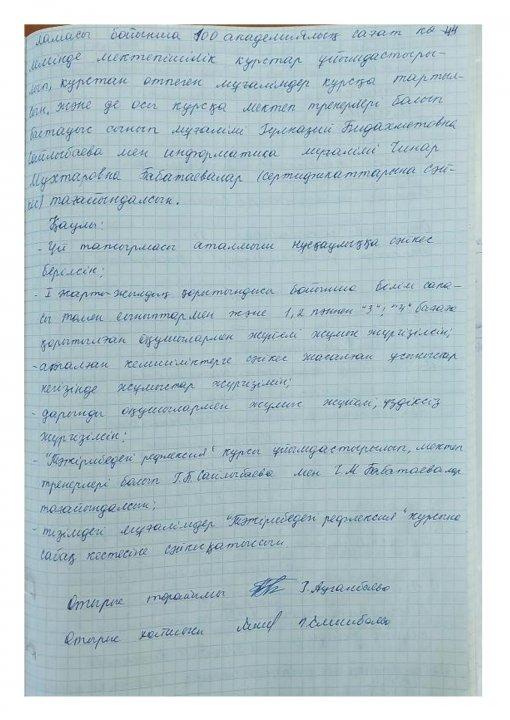 ламасы бойынша 100 академиялық сағат кө 44
лемінде мектепішілік курстар ұйымдастыры-
лып, курстан өтпеген мұғалімдер курсқа тартыл-
сын. Және де осы курсқа мектеп тренерлері болып
бастауыш сынып мұғалімі Гүлказий Бидахметовна
Сайлыбаева мен информатика мұғалімі Чинар
Мухтаровна Бабатаевалар (сертификаттарына сәй-
кес) тағайындалсын.
Қаулы:
- Үй тапсырмасы аталмыш нұсқаулыққа сәйкес
берілсін;
- I жарты жылдық қорытындысы бойынша білім сапа-
сы төмен сыныптармен және 1, 2 пәннен "3", "4" бағаға
қорытылған оқушылармен жүйелі жұмыс жүргізілсін;
- аталған кемшіліктерге сәйкес жасалған ұсыныстар
негізінде жұмыстар жүргізілсін;
- дарынды оқушылармен жұмыс жүйелі, үздіксіз
жүргізілсін;
- "Тәжірибедегі рефлексия" курсы ұйымдастырылып, мектеп
тренерлері болып Г.Б.Сайлыбаева мен Ч.М.Бабатаевалар
тағайындалсын;
- тізімдегі мұғалімдер "Тәжірибедегі рефлексия" курсына
сабақ кестесіне сәйкес қатыссын.
Отырыс төрайымы
Отырыс хатшысы